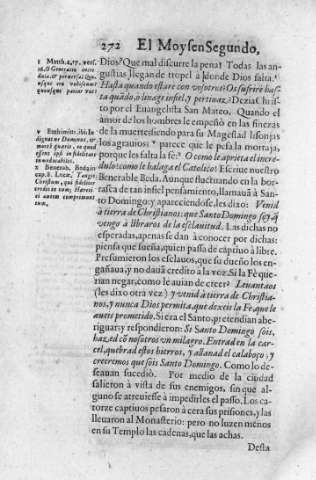 272 El Moysen Segundo,
Dios? Que mal discurre la pena! Todas las an-
gustias llegan de tropel à donde Dios falta.
Hasta quando estare con vosotros? Os sufrirè has-
ta quãdo, ò linage infiel, y pertinaz? Dezia Chris-
to por el Euangelista San Mateo. Quando el
amor de los hombres le empeñò en las finezas
de la muerte
los agrauios: parece que le pesa lo morraja,
porque les falta la fê? O como le aprieta el incre-
dulo! como le halaga el Catolico! Escriue nuestro
Benerable Beda. Aunque fluctuando en la bor-
rasca de tan infiel pensamiento, llamauã à Santo
Domingo: y apareciendose, les dixo: Venid
à tierra de Christianos: que Santo Domingo soy, q̃
vengo à libraros de la esclauitud. Las dichas no
esperadas, apenas se dan à conocer por dichas:
piensa que sueña, quien passa de cãptiuo à libre.
Presumieron los esclauos, que su dueño los en-
gañaua, y no dauã credito à la voz. Si la Fè que-
rian negar, como le auian de creer? Leuantaos
(les dixo otra vez) y venid à tierra de Christia-
nos, y nunca Dios permita, que dexeis la Fe, que le
aueis prometido. Si era el Santo, pretendian abe-
riguar, y respondieron: Si Santo Domingo sois,
hazed cõ nosotros vn milagro. Entrad en la car-
cel, quebrad estos hierros, y allanad el calaboço; y
creeremos que sois Santo Domingo. Como lo de-
seauan sucediò. Por medio de la ciudad
salieron à vista de sus enemigos, sin que al-
guno se atreuiesse à impedirles el passo. Los ca-
torze captiuos posaron à cera sus prisiones, y las
lleuaron al Monasterio: pero no luzen menos
en su Templo las cadenas, que las achas.
Desta
t Matth. 17. vers.
16. O Generatio incre
dula, & peruersa: Quo-
usque ero vobiscum?
quousque patiar vos?
v Euthimius. ibi:
Dominus, &